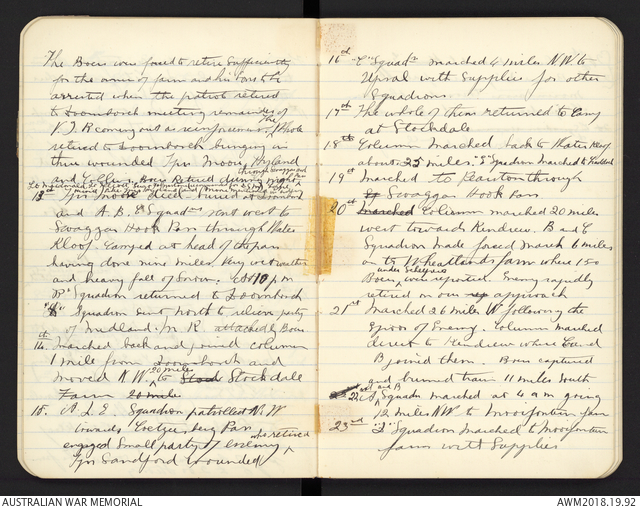 The Boers were forced to retire sufficiently
for the owner of farm and his sons to be
arrested when the patrol returned
to Doornbosch meeting remainder of
V.I.R coming out as reinforcements. The whole
returned to Doornbosch bringing in
three wounded Tprs Moore, Hyland
and Boers Retired during night
through Swaggers
13th Tpr Moore died buried at Doornbosch
and A, B, E Squads went west to
Swaggar Hook Pan through Water
Kloof. Camped at head of the pan
having done nine miles. Very wet weather
and heavy fall of Snow. At 10 p.m
"B" Squadron returned to Doornbosch
Squadron sent North to relieve party
of Midland. M. R. attacked by Boers
14th Marched back and joined column
1 mile from Doornbosch and
moved N.W. 20 miles to Stockdale
Farm 20 miles
15. A. L. E. Squadron patrolled N.W
towards Coetzee berg Pan
engaged small party of enemy who retired
Tpr Sandford wounded
16th "C" Squadn marched 4 miles N.W to
Upsal with Supplies for other
Squadrons
17th The whole of them returned to Camp
at Stockdale
18th Column marched back to Water Kloof
about 25 miles. "E" Squadron marched to
19th Marched to through
to Swaggar Hook Pan
20th Marched Column marched 20 miles
west towards Kendrew. B and C
Squadron made forced march 6 miles
on to Wheatlands farm where 150
Boers under Scheepers were reported. Enemy rapidly
retired on our approach
21st Marched 26 miles W following the
Spoor of Enemy. Column marched
direct to Kendrew where C and
B joined them. Boers captured
and burned train 11 miles South
22nd A and B Squadn marched at 4 a m going
12 miles NW to Mooifontein farm
23rd Squadron marched to Mooifontein
farm with Supplies
AUSTRALIAN WAR MEMORIAL
AWM2018.19.92